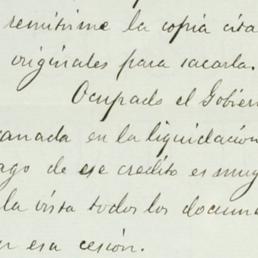 remitirme la copia cita
originales para sacarla.
Ocupado el Gobier
canada en la liquidacion
ago de ese credito es muy
la vista todos los docume
en esa cesión.